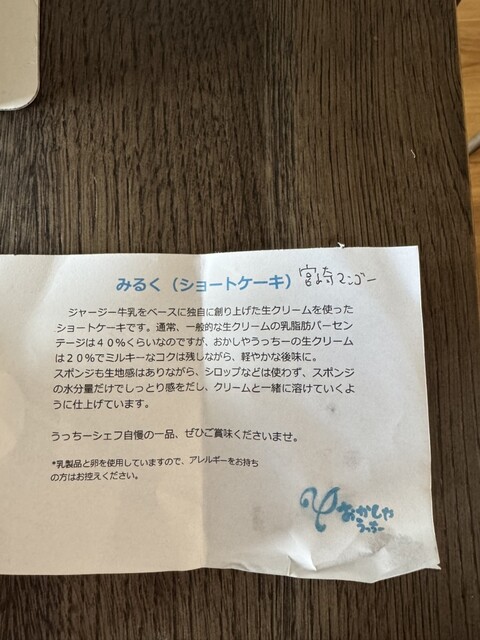 みるく（ショートケーキ） 宮崎マンゴー
ジャージー牛乳をベースに独自に創り上げた生クリームを使った
ショートケーキです。通常、一般的な生クリームの乳脂肪パーセン
テージは４０％くらいなのですが、おかしやうっちーの生クリーム
は２０％でミルキーなコクは残しながら、軽やかな後味に。
スポンジも生地感はありながら、シロップなどは使わず、スポンジ
の水分量だけでしっとり感をだし、クリームと一緒に溶けていくよ
うに仕上げています。
うっちーシェフ自慢の一品、ぜひご賞味くださいませ。
*乳製品と卵を使用していますので、アレルギーをお持ち
の方はお控えください。
おかしや
うっちー